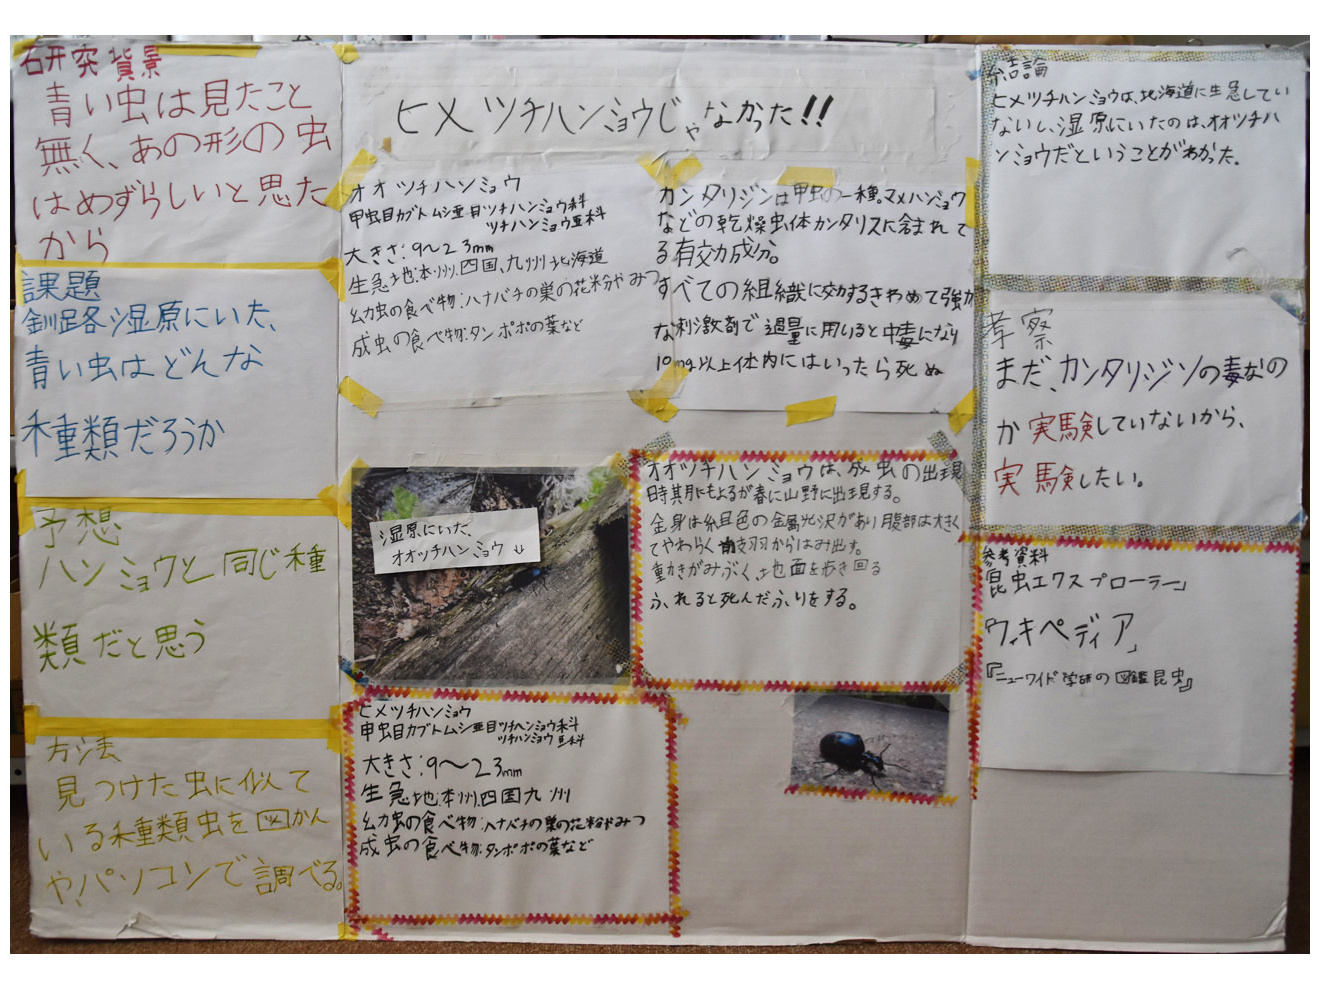 研究背景
青い虫は見たこと
無く、あの形の虫
はめずらしいと思た
から
課題
釧路湿原にいた、
青い虫はどんな
種類だろうか
予想
ハンミョウと同じ種
類だと思う
方法
見つけた虫に似て
いる種類虫を図かん
や、パソコンで調べる。
ヒメツチハンミョウじゃなかった!!
オオツチハンミョウ
甲虫目カブトムシ亜目ツチハンミョウ科
ツチハンミョウ亜科
大きさ:9〜23mm
生息地:本州.四国、九州 北海道
幼虫の食べ物:ハナバチの巣の花粉やみつ
成虫の食べ物:タンポポの葉など
カンタリジンは甲虫の一種。マメハンミョウ
などの乾燥虫体カンタリスに含まれて
る有効成分。
すべての組織に効するきわめて強力
な刺激剤で過量に用いると中毒になり
10mg以上体内にはいったら死ぬ
湿原にいた、
オオツチハンミョウ↓
オオツチハンミョウは、成虫の出現
時期にもよるが春に山野に出現する。
全身は紺色の金属光沢があり腹部は大きく
てやわらく 羽からはみ出す。
動きがにぶく、地面を歩き回る
ふれると死んだふりをする。
ヒメツチハンミョウ
甲虫目カブトムシ亜目ツチハンミョウ科
ツチハンミョウ亜科
大きさ:9〜23mm
生息地:本州.四国九州
幼虫の食べ物:ハナバチの巣の花粉やみつ
成虫の食べ物:タンポポの葉など
結論
ヒメツチハンミョウは、北海道に生息してい
ないし、湿原にいたのは、オオツチハ
ンミョウだということがわかった。
考察
まだ、カンタリジンの毒なの
か実験していないから、
実験したい。
参考資料
「昆虫エクスプローラー」
「ウィキペディア」
『ニューワイド学研の図鑑昆虫』